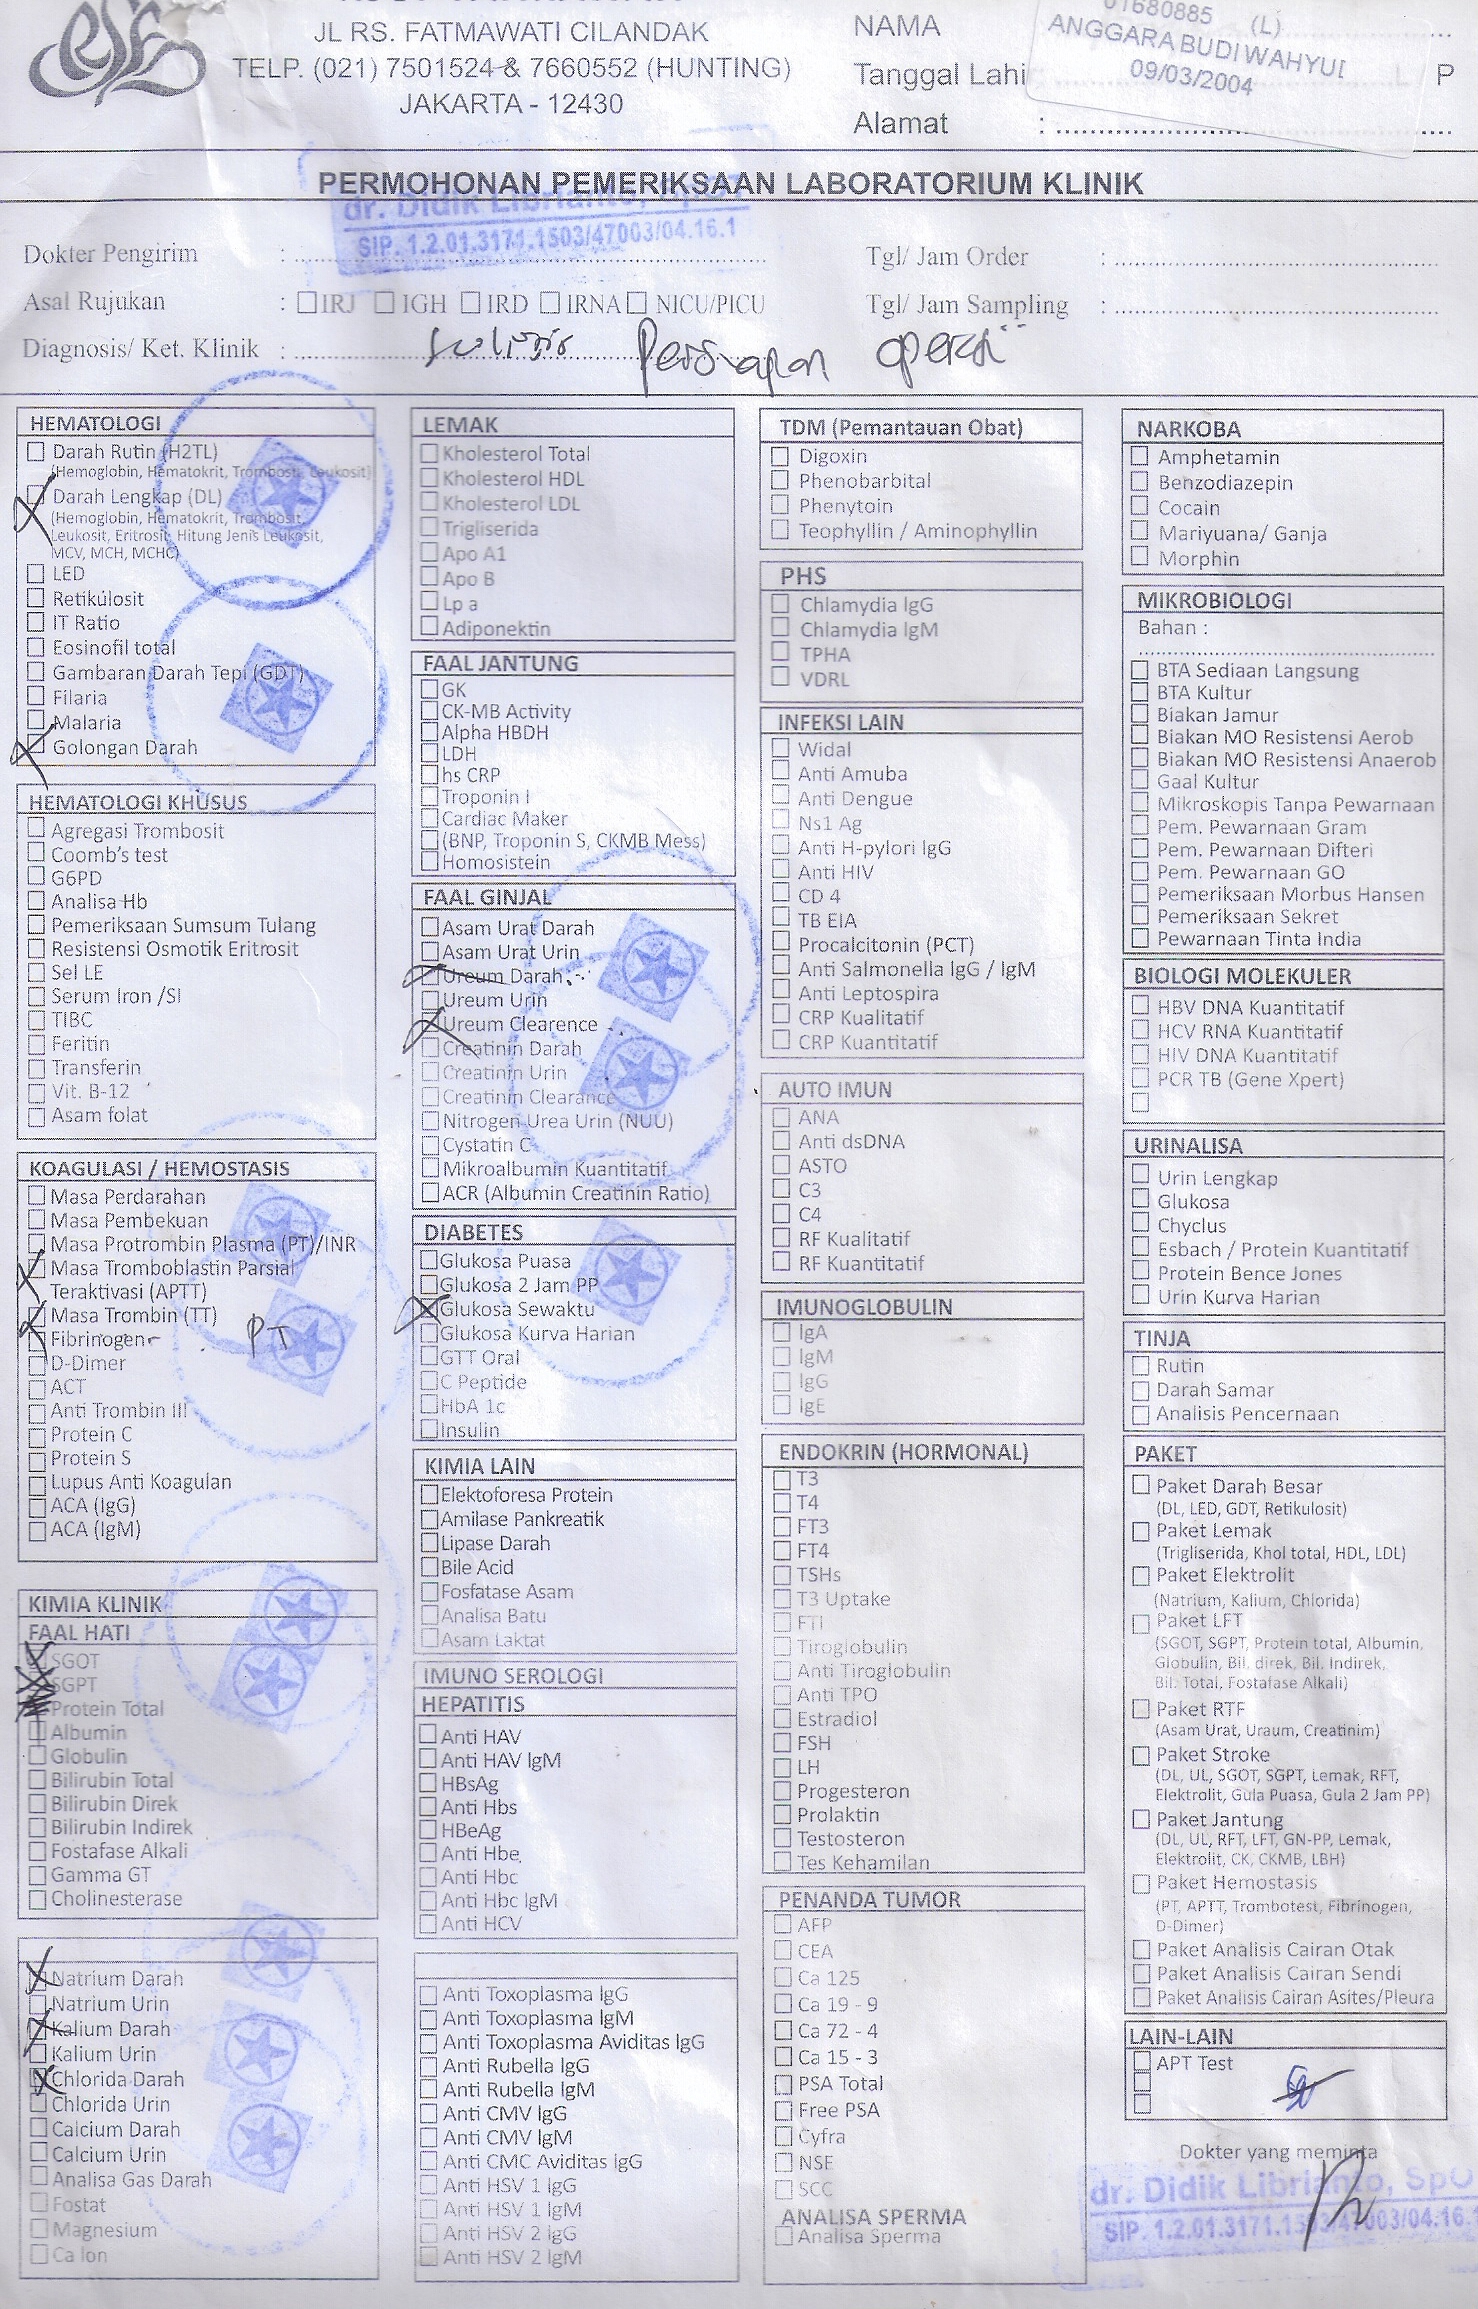 JL RS. FATMAWATI CILANDAK
TELP. (021) 7501524 & 7660552 (HUNTING)
JAKARTA - 12430
NAMA
01680885 (L)
ANGGARA BUDI WAHYUDI
Tanggal Lahi
09/03/2004
L P
Alamat :
PERMOHONAN PEMERIKSAAN LABORATORIUM KLINIK
dr. Didik Librianto, SpOT
SIP. 1.2.01.3171.1503/47003/04.16.1
Dokter Pengirim :
Tgl/ Jam Order :
Asal Rujukan : IRJ IGH IRD IRNA NICU/PICU
Tgl/ Jam Sampling :
Diagnosis/ Ket. Klinik : Persiapan operasi
HEMATOLOGI
Darah Rutin (H2TL)
(Hemoglobin, Hematokrit, Trombosit, Leukosit)
Darah Lengkap (DL)
(Hemoglobin, Hematokrit, Trombosit,
Leukosit, Eritrosit, Hitung Jenis Leukosit,
MCV, MCH, MCHC)
LED
Retikulosit
IT Ratio
Eosinofil total
Gambaran Darah Tepi (GDT)
Filaria
Malaria
Golongan Darah
HEMATOLOGI KHUSUS
Agregasi Trombosit
Coomb's test
G6PD
Analisa Hb
Pemeriksaan Sumsum Tulang
Resistensi Osmotik Eritrosit
Sel LE
Serum Iron /SI
TIBC
Feritin
Transferin
Vit. B-12
Asam folat
KOAGULASI / HEMOSTASIS
Masa Perdarahan
Masa Pembekuan
Masa Protrombin Plasma (PT)/INR
Masa Tromboblastin Parsial
Teraktivasi (APTT)
Masa Trombin (TT)
Fibrinogen
PT
D-Dimer
ACT
Anti Trombin III
Protein C
Protein S
Lupus Anti Koagulan
ACA (IgG)
ACA (IgM)
KIMIA KLINIK
FAAL HATI
SGOT
SGPT
Protein Total
Albumin
Globulin
Bilirubin Total
Bilirubin Direk
Bilirubin Indirek
Fostafase Alkali
Gamma GT
Cholinesterase
Natrium Darah
Natrium Urin
Kalium Darah
Kalium Urin
Chlorida Darah
Chlorida Urin
Calcium Darah
Calcium Urin
Analisa Gas Darah
Fostat
Magnesium
Ca Ion
LEMAK
Kholesterol Total
Kholesterol HDL
Kholesterol LDL
Trigliserida
Apo A1
Apo B
Lp a
Adiponektin
FAAL JANTUNG
GK
CK-MB Activity
Alpha HBDH
LDH
hs CRP
Troponin I
Cardiac Maker
(BNP, Troponin S, CKMB Mess)
Homosistein
FAAL GINJAL
Asam Urat Darah
Asam Urat Urin
Ureum Darah
Ureum Urin
Ureum Clearence
Creatinin Darah
Creatinin Urin
Creatinin Clearance
Nitrogen Urea Urin (NUU)
Cystatin C
Mikroalbumin Kuantitatif
ACR (Albumin Creatinin Ratio)
DIABETES
Glukosa Puasa
Glukosa 2 Jam PP
Glukosa Sewaktu
Glukosa Kurva Harian
GTT Oral
C Peptide
HbA 1c
Insulin
KIMIA LAIN
Elektoforesa Protein
Amilase Pankreatik
Lipase Darah
Bile Acid
Fosfatase Asam
Analisa Batu
Asam Laktat
IMUNO SEROLOGI
HEPATITIS
Anti HAV
Anti HAV IgM
HBsAg
Anti Hbs
HBeAg
Anti Hbe
Anti Hbc
Anti Hbc IgM
Anti HCV
Anti Toxoplasma IgG
Anti Toxoplasma IgM
Anti Toxoplasma Aviditas IgG
Anti Rubella IgG
Anti Rubella IgM
Anti CMV IgG
Anti CMV IgM
Anti CMC Aviditas IgG
Anti HSV 1 IgG
Anti HSV 1 IgM
Anti HSV 2 IgG
Anti HSV 2 IgM
TDM (Pemantauan Obat)
Digoxin
Phenobarbital
Phenytoin
Teophyllin / Aminophyllin
PHS
Chlamydia IgG
Chlamydia IgM
TPHA
VDRL
INFEKSI LAIN
Widal
Anti Amuba
Anti Dengue
Ns1 Ag
Anti H-pylori IgG
Anti HIV
CD 4
TB EIA
Procalcitonin (PCT)
Anti Salmonella IgG / IgM
Anti Leptospira
CRP Kualitatif
CRP Kuantitatif
AUTO IMUN
ANA
Anti dsDNA
ASTO
C3
C4
RF Kualitatif
RF Kuantitatif
IMUNOGLOBULIN
IgA
IgM
IgG
IgE
ENDOKRIN (HORMONAL)
T3
T4
FT3
FT4
TSHs
T3 Uptake
FTI
Tiroglobulin
Anti Tiroglobulin
Anti TPO
Estradiol
FSH
LH
Progesteron
Prolaktin
Testosteron
Tes Kehamilan
PENANDA TUMOR
AFP
CEA
Ca 125
Ca 19 - 9
Ca 72 - 4
Ca 15 - 3
PSA Total
Free PSA
Cyfra
NSE
SCC
ANALISA SPERMA
Analisa Sperma
NARKOBA
Amphetamin
Benzodiazepin
Cocain
Mariyuana/ Ganja
Morphin
MIKROBIOLOGI
Bahan :
BTA Sediaan Langsung
BTA Kultur
Biakan Jamur
Biakan MO Resistensi Aerob
Biakan MO Resistensi Anaerob
Gaal Kultur
Mikroskopis Tanpa Pewarnaan
Pem. Pewarnaan Gram
Pem. Pewarnaan Difteri
Pem. Pewarnaan GO
Pemeriksaan Morbus Hansen
Pemeriksaan Sekret
Pewarnaan Tinta India
BIOLOGI MOLEKULER
HBV DNA Kuantitatif
HCV RNA Kuantitatif
HIV DNA Kuantitatif
PCR TB (Gene Xpert)
URINALISA
Urin Lengkap
Glukosa
Chyclus
Esbach / Protein Kuantitatif
Protein Bence Jones
Urin Kurva Harian
TINJA
Rutin
Darah Samar
Analisis Pencernaan
PAKET
Paket Darah Besar
(DL, LED, GDT, Retikulosit)
Paket Lemak
(Trigliserida, Khol total, HDL, LDL)
Paket Elektrolit
(Natrium, Kalium, Chlorida)
Paket LFT
(SGOT, SGPT, Protein total, Albumin,
Globulin, Bil. direk, Bil. Indirek,
Bil. Total, Fostafase Alkali)
Paket RTF
(Asam Urat, Uraum, Creatinim)
Paket Stroke
(DL, UL, SGOT, SGPT, Lemak, RFT,
Elektrolit, Gula Puasa, Gula 2 Jam PP)
Paket Jantung
(DL, UL, RFT, LFT, GN-PP, Lemak,
Elektrolit, CK, CKMB, LBH)
Paket Hemostasis
(PT, APTT, Trombotest, Fibrinogen,
D-Dimer)
Paket Analisis Cairan Otak
Paket Analisis Cairan Sendi
Paket Analisis Cairan Asites/Pleura
LAIN-LAIN
APT Test
Dokter yang meminta
dr. Didik Librianto, SpO
SIP. 1.2.01.3171.1503/47003/04.16.1